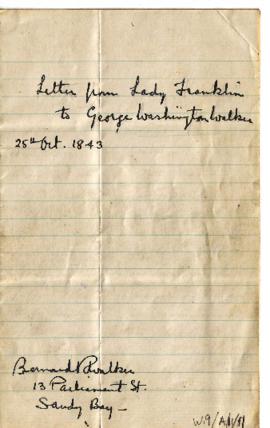 Letter from Lady Franklin
to George Washington Walker
25th Oct. 1843
Bernard Walker
13 Parliament St.
Sandy Bay -
W.9/A1/